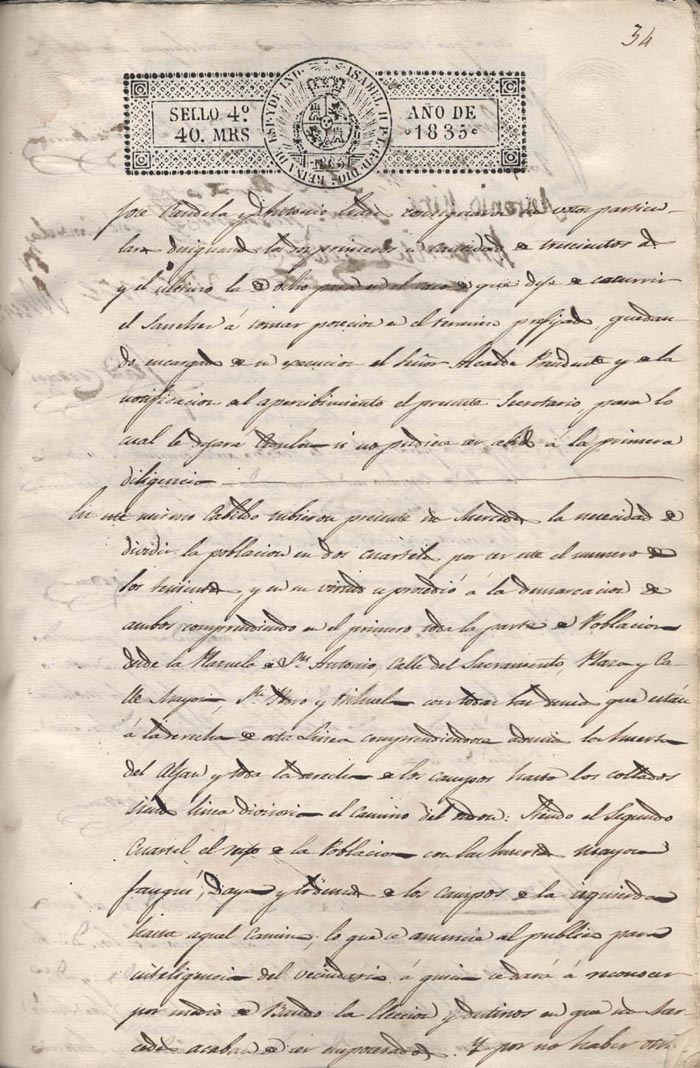 34
SELLO 4º
40. MRS
ISABEL II P. L. G. DE DIOS REINA DE ESP. Y DE IND.
1835
AÑO DE
1835
Jose Candela y Antonio votos particu-
lares la cantidad de trescientos
y el ultimo la de ocho para en el caso de que deje de concurrir
el Sanchez á tomar posecion en el termino prefijado, quedan-
do encargado de su execucion el Señor Alcalde Presidente y de la
notificacion del apercibimiento el presente Secretario, para lo
cual le dejara si no pudiese ser á la primera
diligencia
En este mismo Cabildo tubieron presente sus Mercedes la necesidad de
dividir la poblacion en dos cuarteles por ser este el numero de
los tenientes y en su virtud se procedió á la demarcacion de
ambos comprendiendo en el primero toda la parte de Poblacion
desde la Plazuela de Sn. Antonio, Calle del Sacramento, Plaza y Ca-
lle Mayor Sn. y con todas las demas que estan
á la derecha de esta Linea comprendiendose ademas la huerta
del y toda la derecha de los campos hasta los collados
siendo linea divisoria el camino del : Siendo el Segundo
Cuartel el resto de la Poblacion con las huertas mayor
fauquí, Daya y lo demas de los campos de la izquierda
hasta aquel camino; lo que se anuncie al publico para
inteligencia del vecindario á quien se dará á reconocer
por medio de Bando la Eleccion y destinos en que sus Mer-
cedes acaban de ser Y por no haber otra